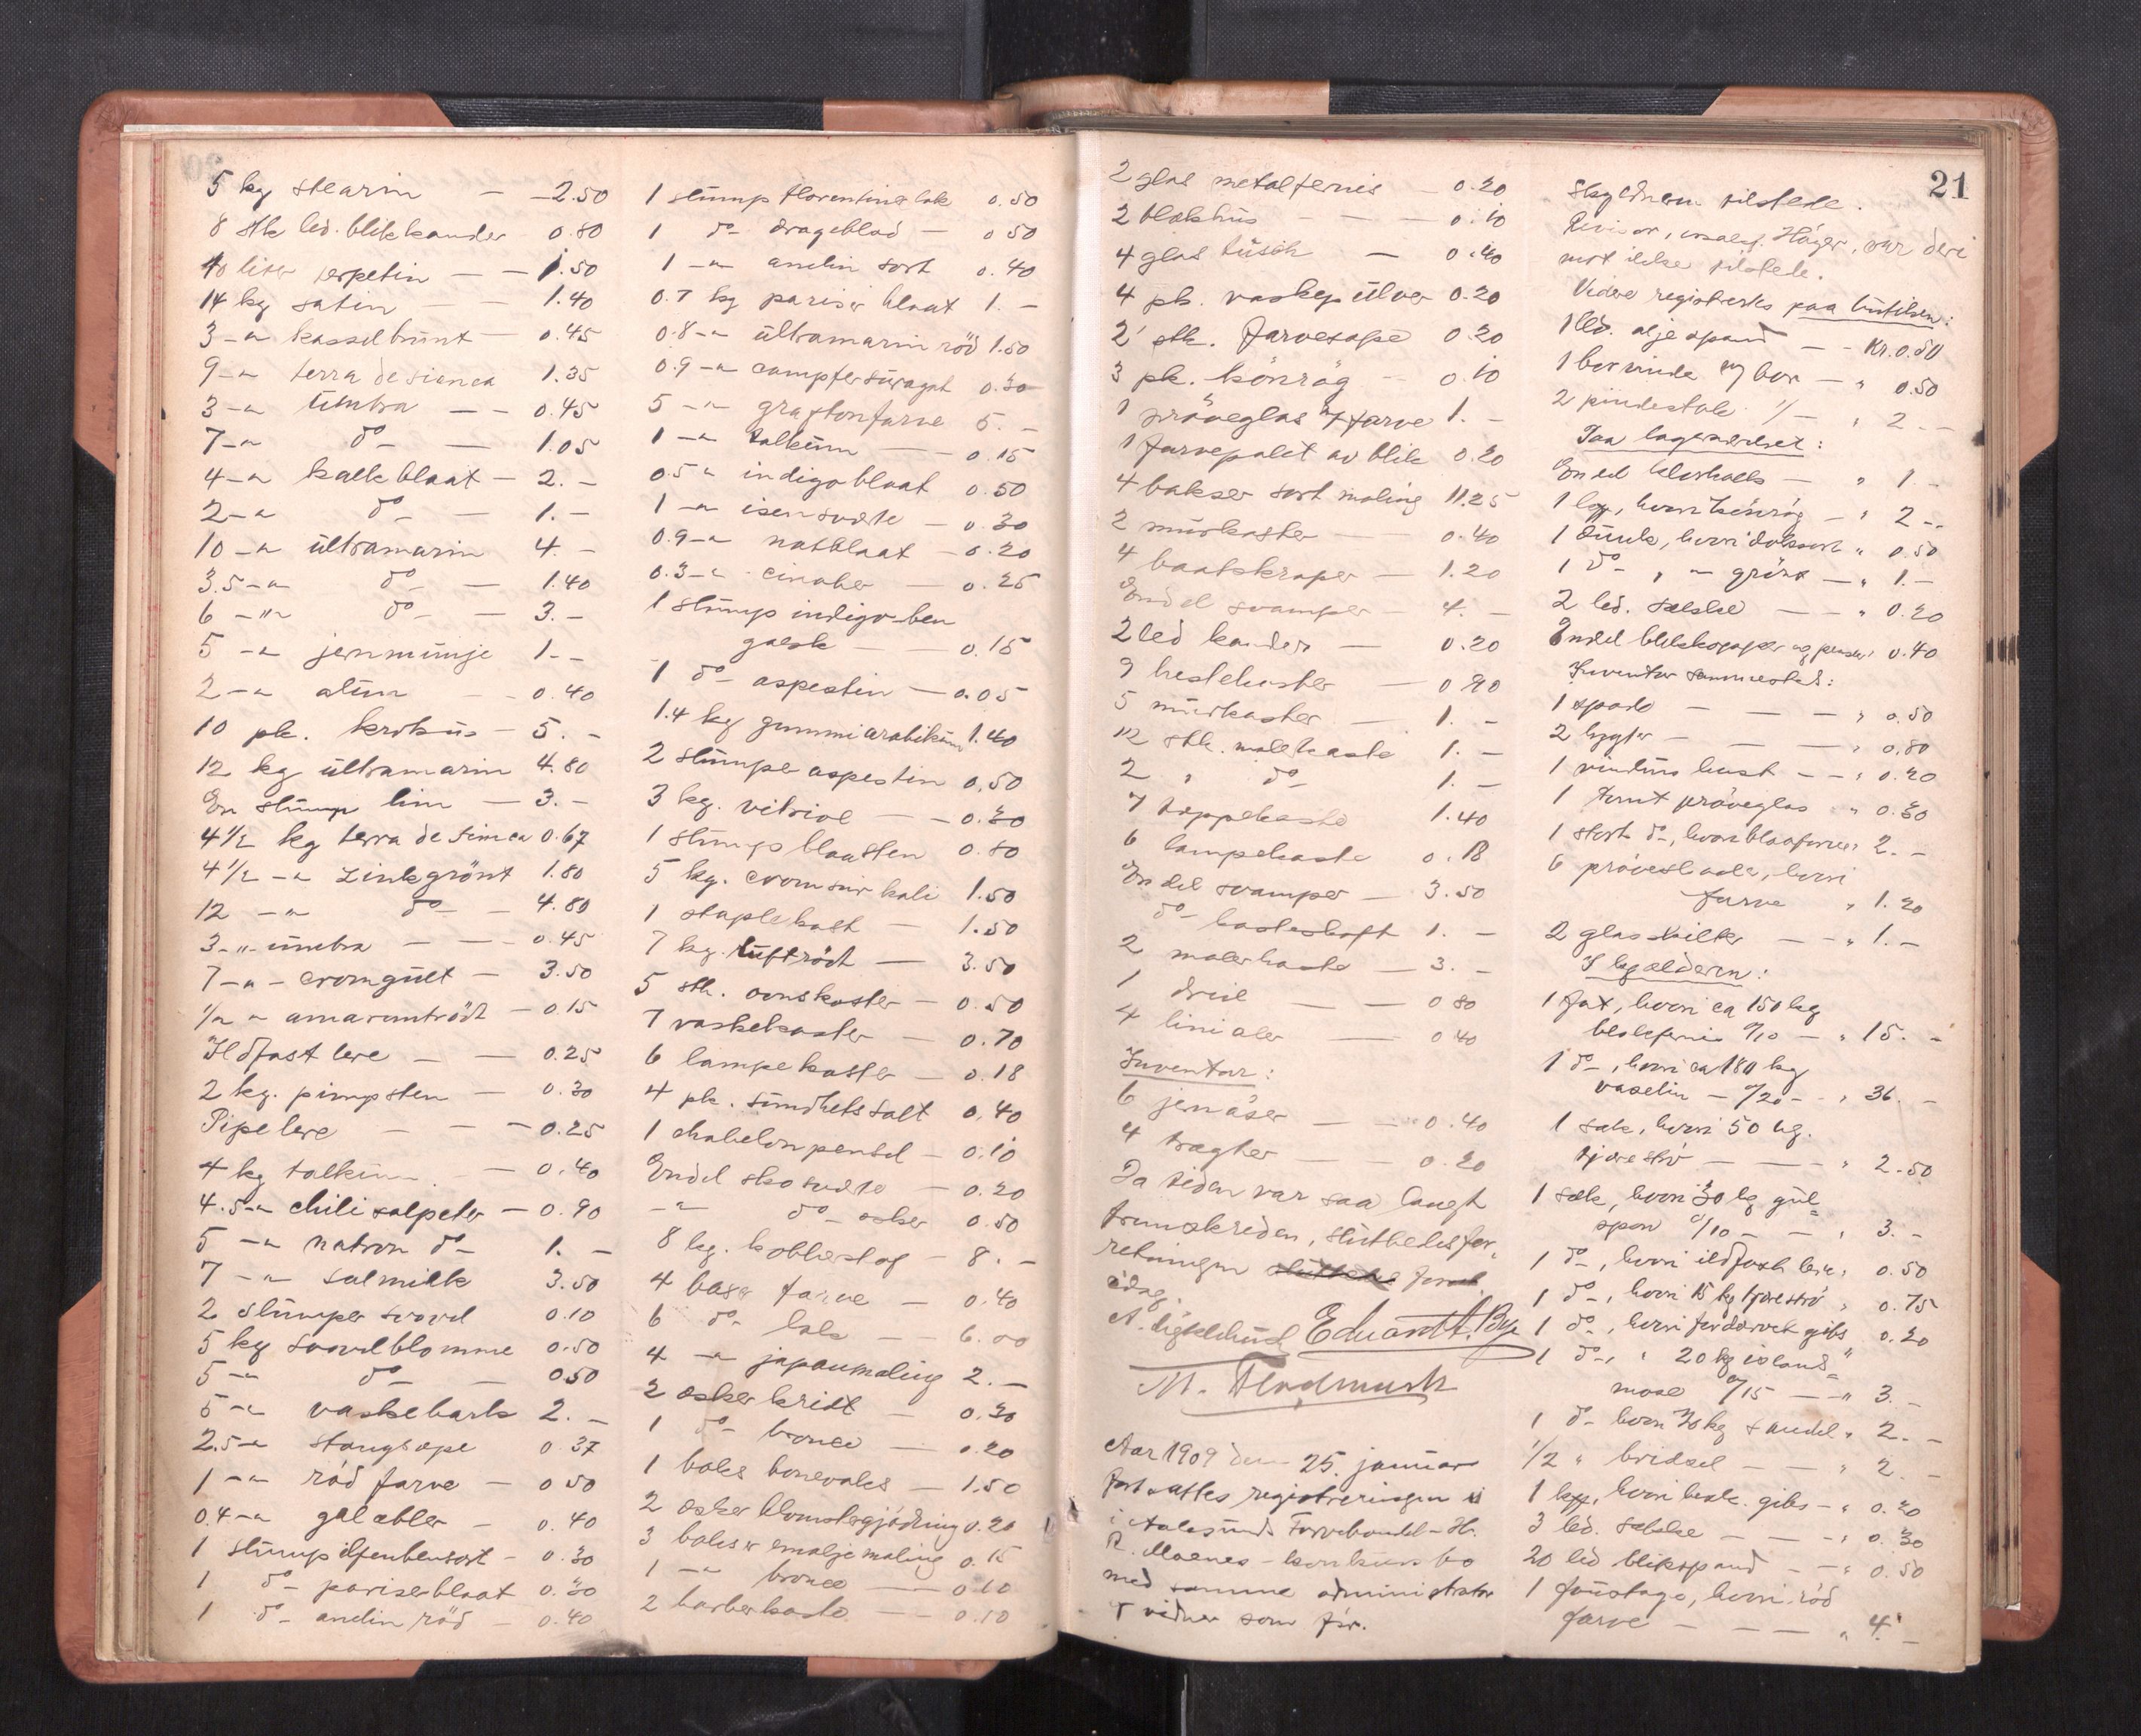 5 kg stearin — 2.50
8 stk led. blikkander 0.80
10 liter terpetin — 1.50
14 kg satin — 1.40
3 -"- kasselbrunt — 0.45
9 -"- terra de sienca 1.35
3 -"- umbra — 0.45
7 -"- do — 1.05
4 -"- kalkblaat — 2.-
2 -"- do — 1.-
10 -"- ultramarin 4.-
3.5 -"- do — 1.40
6 -"- do — 3.-
5 -"- jernmünje 1.-
2 -"- alun — 0.40
10 pk. krokus — 5.-
12 kg ultramarin 4.80
En stump lim — 3.-
4½ kg terra de simca 0.67
4½ -"- zinkgrönt 1.80
12 -"- do — 4.80
3 -"- umbra — 0.45
7 -"- cromgult — 3.50
½ -"- amarantrödt — 0.15
Ildfast lere — 0.25
2 kg. pimpsten — 0.30
Pipelere — 0.25
4 kg talkum — 0.40
4.5 -"- chilisalpeter — 0.90
5 -"- natron do 1.-
7 -"- salmiakk 3.50
2 stumper svovel 0.10
5 kg svovelblomme 0.50
5 -"- do — 0.50
5 -"- vaskebark 2.-
2.5 -"- stangsape 0.37
1 -"- röd farve — 0.50
0.4 -"- galebler — 0.40
1 stump elfenbensort — 0.30
1 do pariserblaat 0.30
1 do anelin röd — 0.40
1 stump florentiner lak 0.50
1 do drageblod — 0.50
1 -"- anelin sort 0.40
0.7 kg pariser blaat 1.-
0.8 -"- ultramarin röd 1.50
0.9 -"- 0.30
5 -"- graftonfarve 5.-
1 -"- talkum — 0.15
0.5 -"- indigoblaat 0.50
1 -"- isensverte — 0.30
0.9 -"- natblaat — 0.20
0.3 -"- cinober — 0.25
1 stump indigo-ben
galsk — 0.15
1 do aspestin — 0.05
1.4 kg gummiarabikum 1.40
2 stumper aspestin 0.50
3 kg. vitriol — 0.30
1 stump blaasten 0.80
5 kg. cromsur kali 1.50
1 staplekalt — 1.50
7 kg. luftrödt — 3.50
5 stk. ovnskoster — 0.50
7 vaskekoster — 0.70
6 lampekoster — 0.18
4 pk. sundhetssalt 0.40
1 chabelonpensel — 0.10
Endel skosverte — 0.20
-"- do esker 0.50
8 kg. koblerstof — 8.-
4 boks farve — 0.40
6 do lak — 6.00
4 -"- japanmaling 2.-
2 esker kridt — 0.30
1 do bronce — 0.20
1 boks bonevoks — 1.50
2 esker blomstergjödning 0.20
3 bokser emaljemaling 0.15
1 -"- bronce — 0.10
2 barberkoste — 0.10
21
2 glas metalfernis — 0.20
2 blækhus — 0.10
4 glas tusch — 0.40
4 pk. vaskepulver 0.20
2 stk. farvesape 0.20
3 pk. könrög — 0.10
1 pröveglas m/ farve 1.-
1 farvepalet av blik 0.20
4 bokser sort maling 11.25
2 murkoster — 0.40
4 baatskraper — 1.20
Endel svamper — 4.-
2 led kander — 0.20
9 hestekoster — 0.90
5 murkoster — 1.-
12 stk. malekoste 1.-
2 " do 1.-
7 toppekoste 1.40
6 lampekoste 0.18
Endel svamper — 3.50
do kosteskaft 1.-
2 malerkoste — 3.-
1 dreil — 0.80
4 linialer — 0.40
Inventar:
6 jernöser — 0.40
4 tragter — 0.20
Da tiden var saa langt
fremskriden, sluttedes for-
retningen
idag.
Edvardt. Bye
Aar 1909 den 25. januar
fortsattes registreringen
i Aalesunds Farvehandel - H.
R. Moenes - konkursbo
med samme administrator
& vidner som för.
Skyldneren tilstede.
Revisor, Höyer, var deri
mot ikke tilstede.
Videre registrertes paa butikken:
1 led. oljespand — kr. 0.50
1 borvinde m/ bor — " 0.50
2 pindestole 1/- " 2.-
Paa lagerverelset:
Endel klorkalk — " 1.-
1 kg, hvori könrög — " 2.-
1 dunk, hvori " 0.50
1 do " -"- grönt — " 1.-
2 led. sække — " 0.20
Endel blikkopper og " 0.40
Inventar sammesteds:
1 spade — " 0.50
2 lygter — " 0.80
1 vinduskost — " 0.20
1 tomt pröveglas " 0.30
1 stort do, hvori blaafarve " 2.-
6 pröveskaale, hvori
farve " 1.20
2 glasskilter — " 1.-
I kjelderen:
1 fat, hvori ca 150 kg
bækfernis a/10 — " 15.-
1 do, hvori ca 180 kg
vaselin — a/20 — " 36.-
1 sæk, hvori 50 kg.
— " 2.50
1 sæk, hvori 30 kg gul-
spon a/10 — " 3.-
1 do, hvori ildfast lere " 0.50
1 do, hvori 15 kg " 0.75
1 do, hvori fordærvet gibs 0.20
1 do, " 20 kg island-
mose a/15 — " 3.-
1 do hvori 30 kg sandel " 2.-
1/2 " bridsel — " 2.-
1 kg, hvori besk. gibs — " 0.20
3 led. sække — " 0.30
20 led blikspand — " 0.50
1 foustage, hvori röd
farve — " 4.-